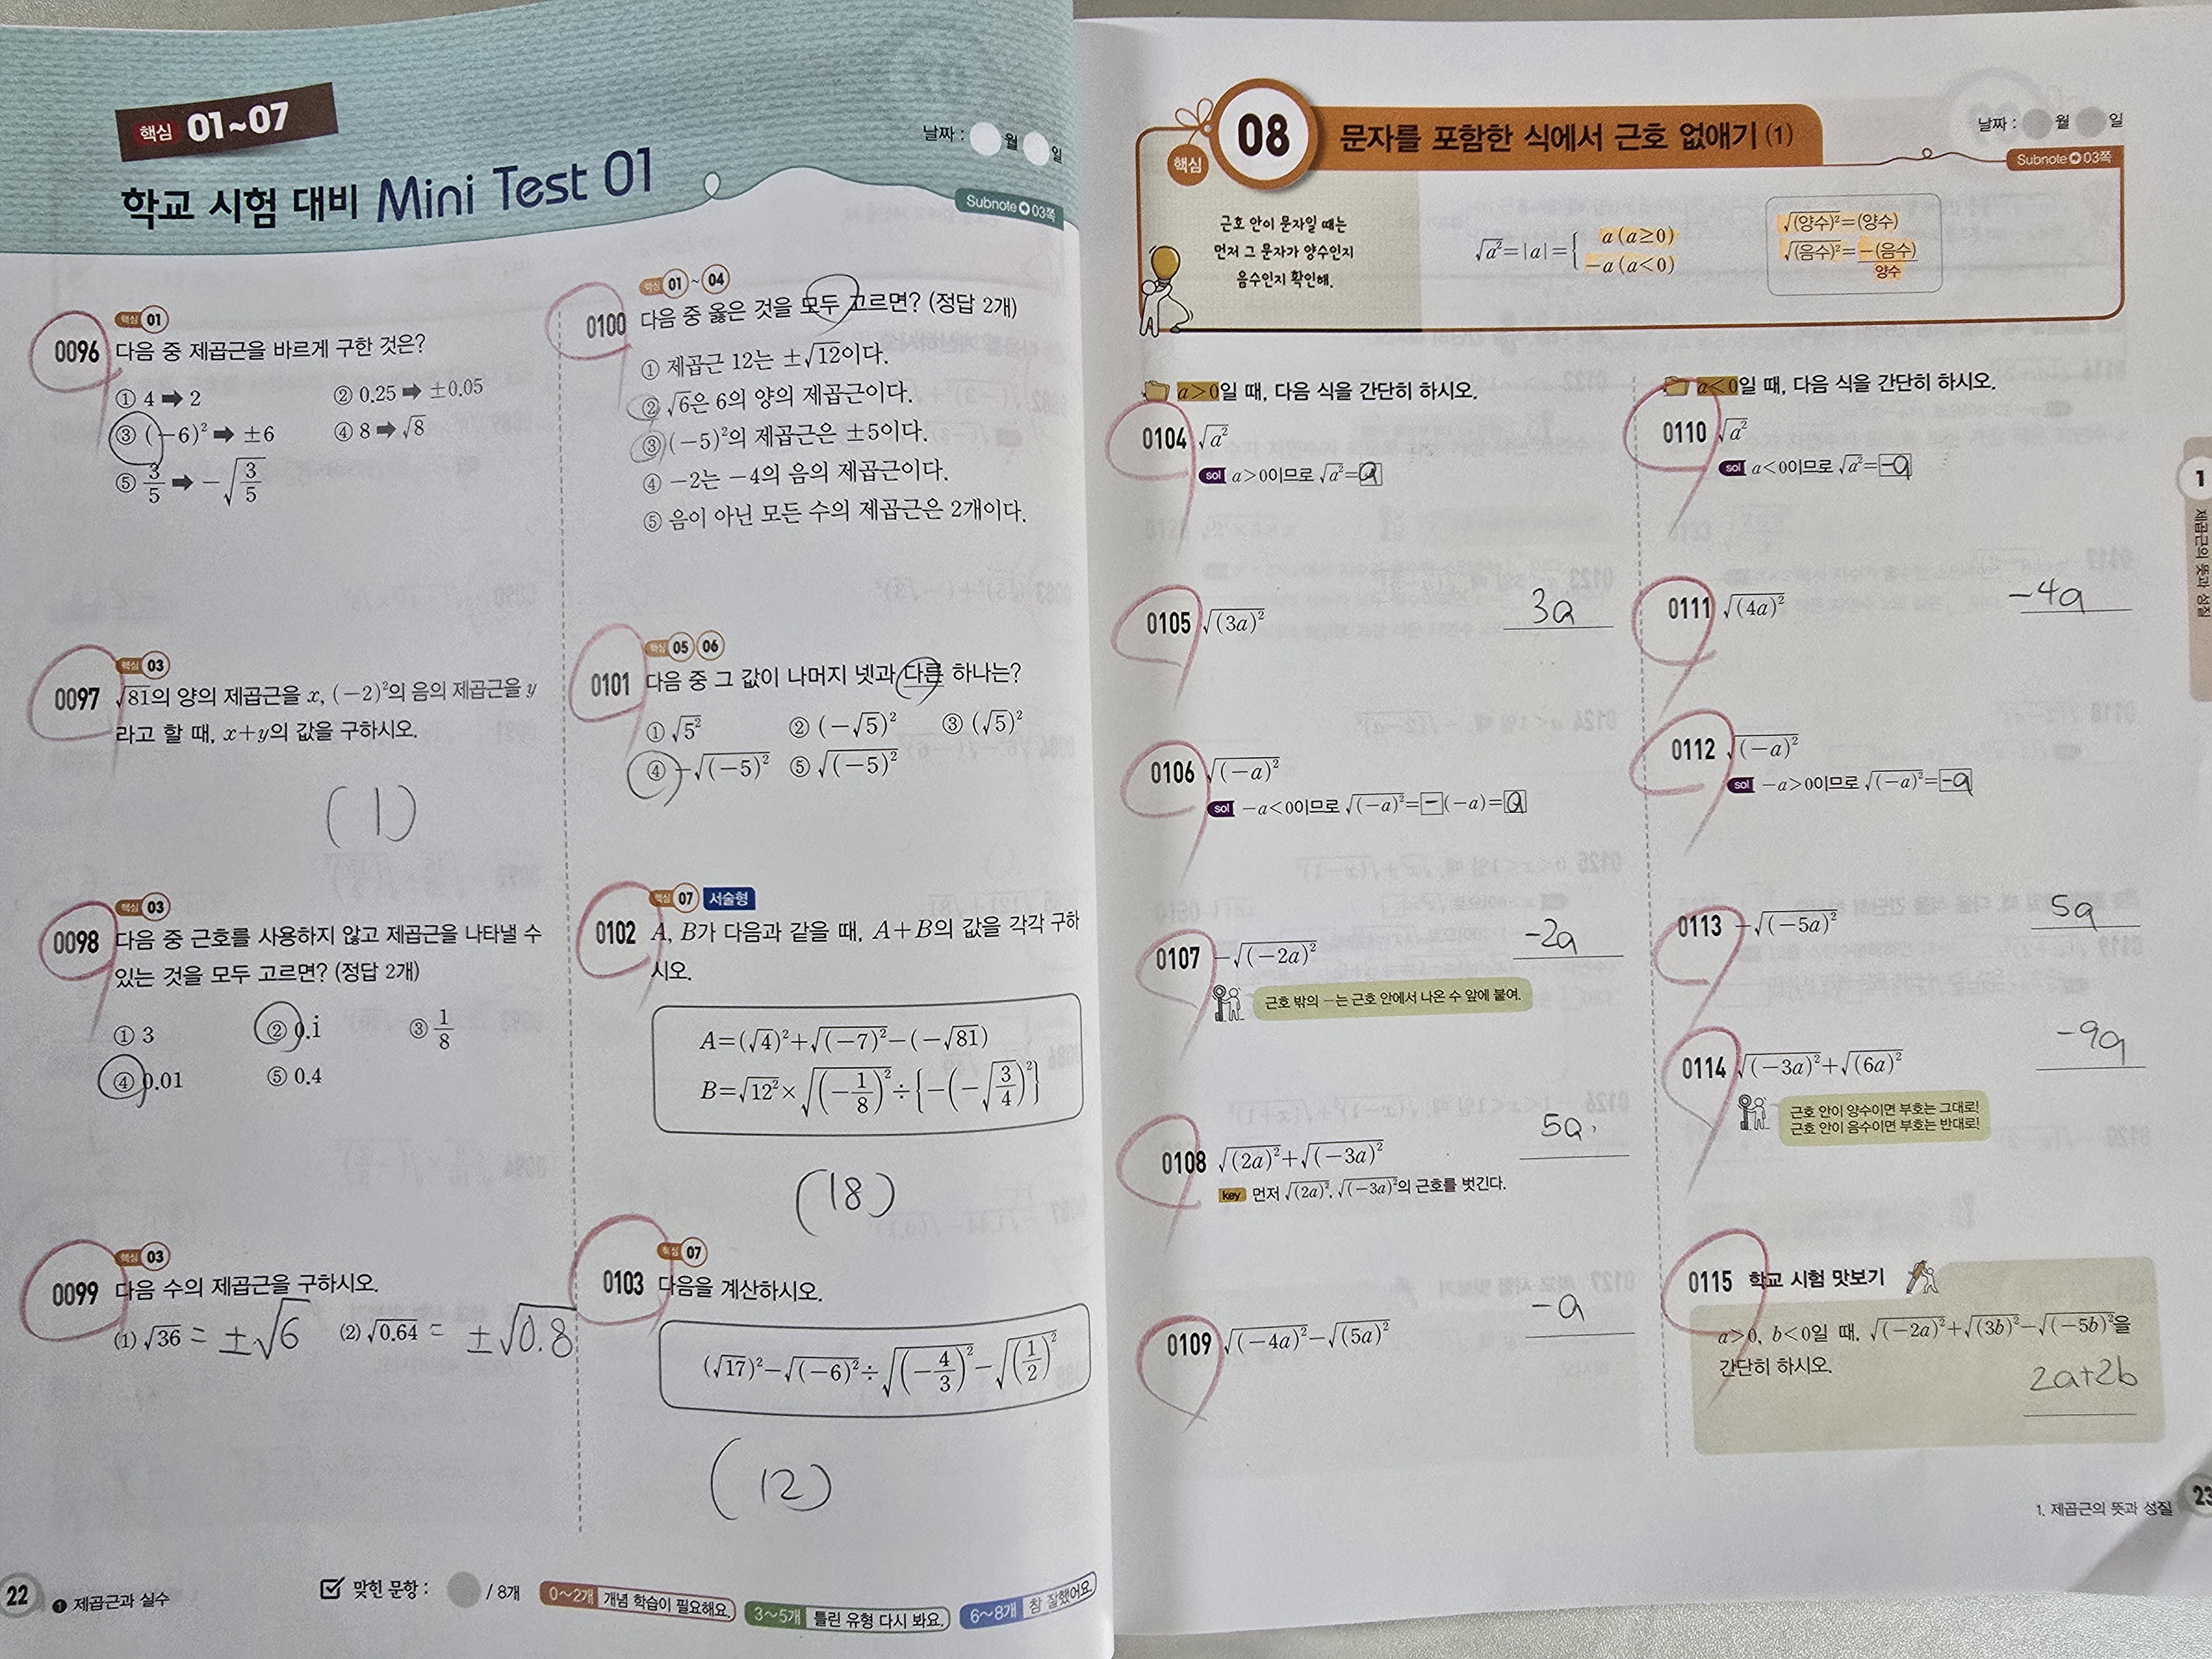 핵심 01~07
학교 시험 대비 Mini Test 01
날짜 : 월 일
Subnote 03쪽
핵심 01
0096 다음 중 제곱근을 바르게 구한 것은?
① 4 ➡ 2 ② 0.25 ➡ ±0.05
③ (−6)² ➡ ±6 ④ 8 ➡ √8
⑤ 3/5 ➡ −√(3/5)
핵심 03
0097 √81의 양의 제곱근을 x, (−2)²의 음의 제곱근을 y
라고 할 때, x+y의 값을 구하시오.
(1)
핵심 03
0098 다음 중 근호를 사용하지 않고 제곱근을 나타낼 수
있는 것을 모두 고르면? (정답 2개)
① 3 ② 0.i ③ 1/8
④ 0.01 ⑤ 0.4
핵심 03
0099 다음 수의 제곱근을 구하시오.
(1) √36 = ±√6 (2) √0.64 = ±√0.8
핵심 01 ~ 04
0100 다음 중 옳은 것을 모두 고르면? (정답 2개)
① 제곱근 12는 ±√12이다.
② √6은 6의 양의 제곱근이다.
③ (−5)²의 제곱근은 ±5이다.
④ −2는 −4의 음의 제곱근이다.
⑤ 음이 아닌 모든 수의 제곱근은 2개이다.
핵심 05 06
0101 다음 중 그 값이 나머지 넷과 다른 하나는?
① √5² ② (−√5)² ③ (√5)²
④ −√(−5)² ⑤ √(−5)²
핵심 07 서술형
0102 A, B가 다음과 같을 때, A+B의 값을 각각 구하
시오.
A=(√4)²+√(−7)²−(−√81)
B=√12²×√(−1/8)²÷{−(−√(3/4))²}
(18)
핵심 07
0103 다음을 계산하시오.
(√17)²−√(−6)²÷√(−4/3)²−√(1/2)²
(12)
22 ❶ 제곱근과 실수
맞힌 문항 : / 8개 0~2개 개념 학습이 필요해요. 3~5개 틀린 유형 다시 봐요. 6~8개 참 잘했어요.
핵심 08 문자를 포함한 식에서 근호 없애기 (1)
날짜 : 월 일
Subnote 03쪽
근호 안이 문자일 때는
먼저 그 문자가 양수인지
음수인지 확인해.
√a²=|a|={ a (a≥0)
−a (a<0)
√(양수)²=(양수)
√(음수)²=−(음수)
양수
a>0일 때, 다음 식을 간단히 하시오.
0104 √a²
sol a>0이므로 √a²=a
0105 √(3a)² 3a
0106 √(−a)²
sol −a<0이므로 √(−a)²=−(−a)=a
0107 −√(−2a)² -2a
근호 밖의 −는 근호 안에서 나온 수 앞에 붙여.
0108 √(2a)²+√(−3a)² 5a
key 먼저 √(2a)², √(−3a)²의 근호를 벗긴다.
0109 √(−4a)²−√(5a)² -a
a<0일 때, 다음 식을 간단히 하시오.
0110 √a²
sol a<0이므로 √a²=-a
0111 √(4a)² -4a
0112 √(−a)²
sol −a>0이므로 √(−a)²=-a
0113 −√(−5a)² 5a
0114 √(−3a)²+√(6a)² -9a
근호 안이 양수이면 부호는 그대로!
근호 안이 음수이면 부호는 반대로!
0115 학교 시험 맛보기
a>0, b<0일 때, √(−2a)²+√(3b)²−√(−5b)²을
간단히 하시오.
2a+2b
1
제곱근의 뜻과 성질
1. 제곱근의 뜻과 성질 23